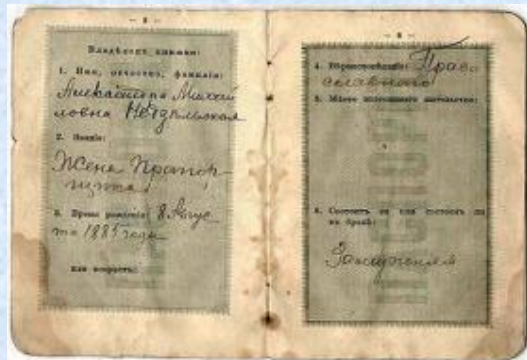 — 2 —
Владѣлецъ книжки:
1. Имя, отчество, фамилія:
Михай
ловна
2. Званіе:
Жена Прапор-
щика
3. Время рожденія: 8 Авгус
та 1885 года
или возрастъ:
— 3 —
4. Вѣроисповѣданіе: Право
славного
5. Мѣсто постояннаго жительства:
6. Состоитъ ли или состоялъ ли
въ бракѣ:
Замужняя